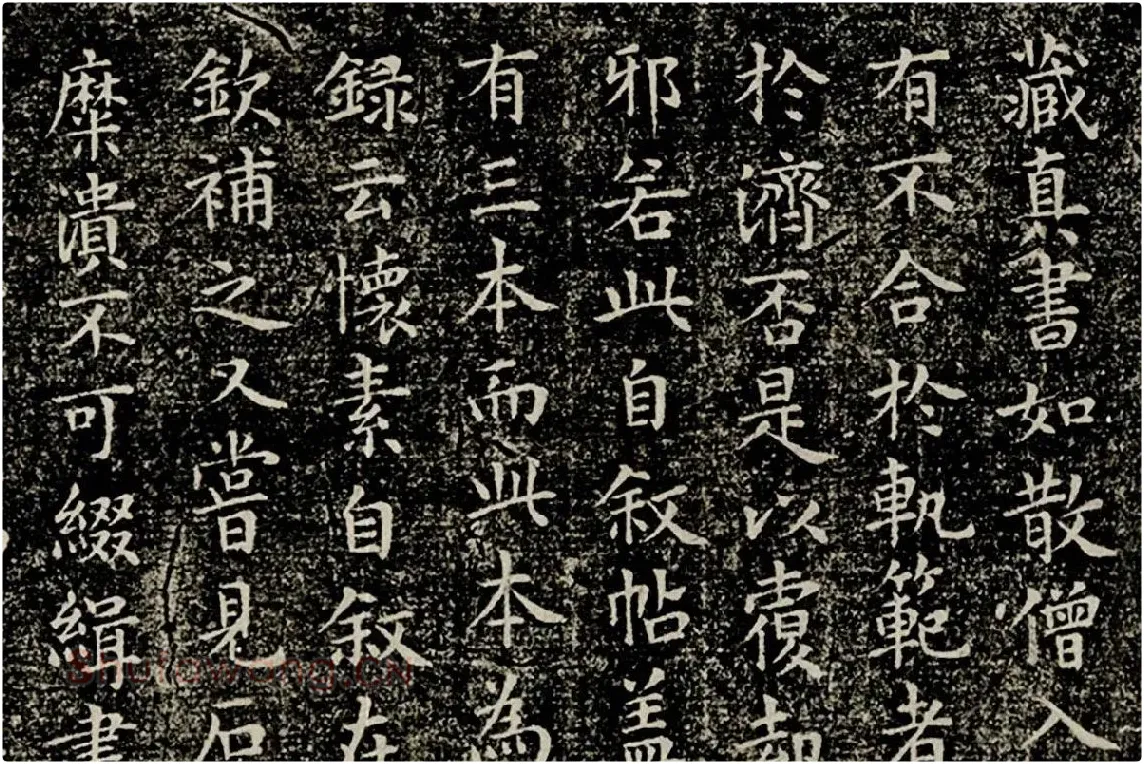 藏真書如散僧入
有不合於軌範者
於濟否是以覆却
邪若此自叙帖盖
有三本而此本為
録云懷素自叙在
欽補之又嘗見石
糜潰不可綴緝書
Shufawang.CN